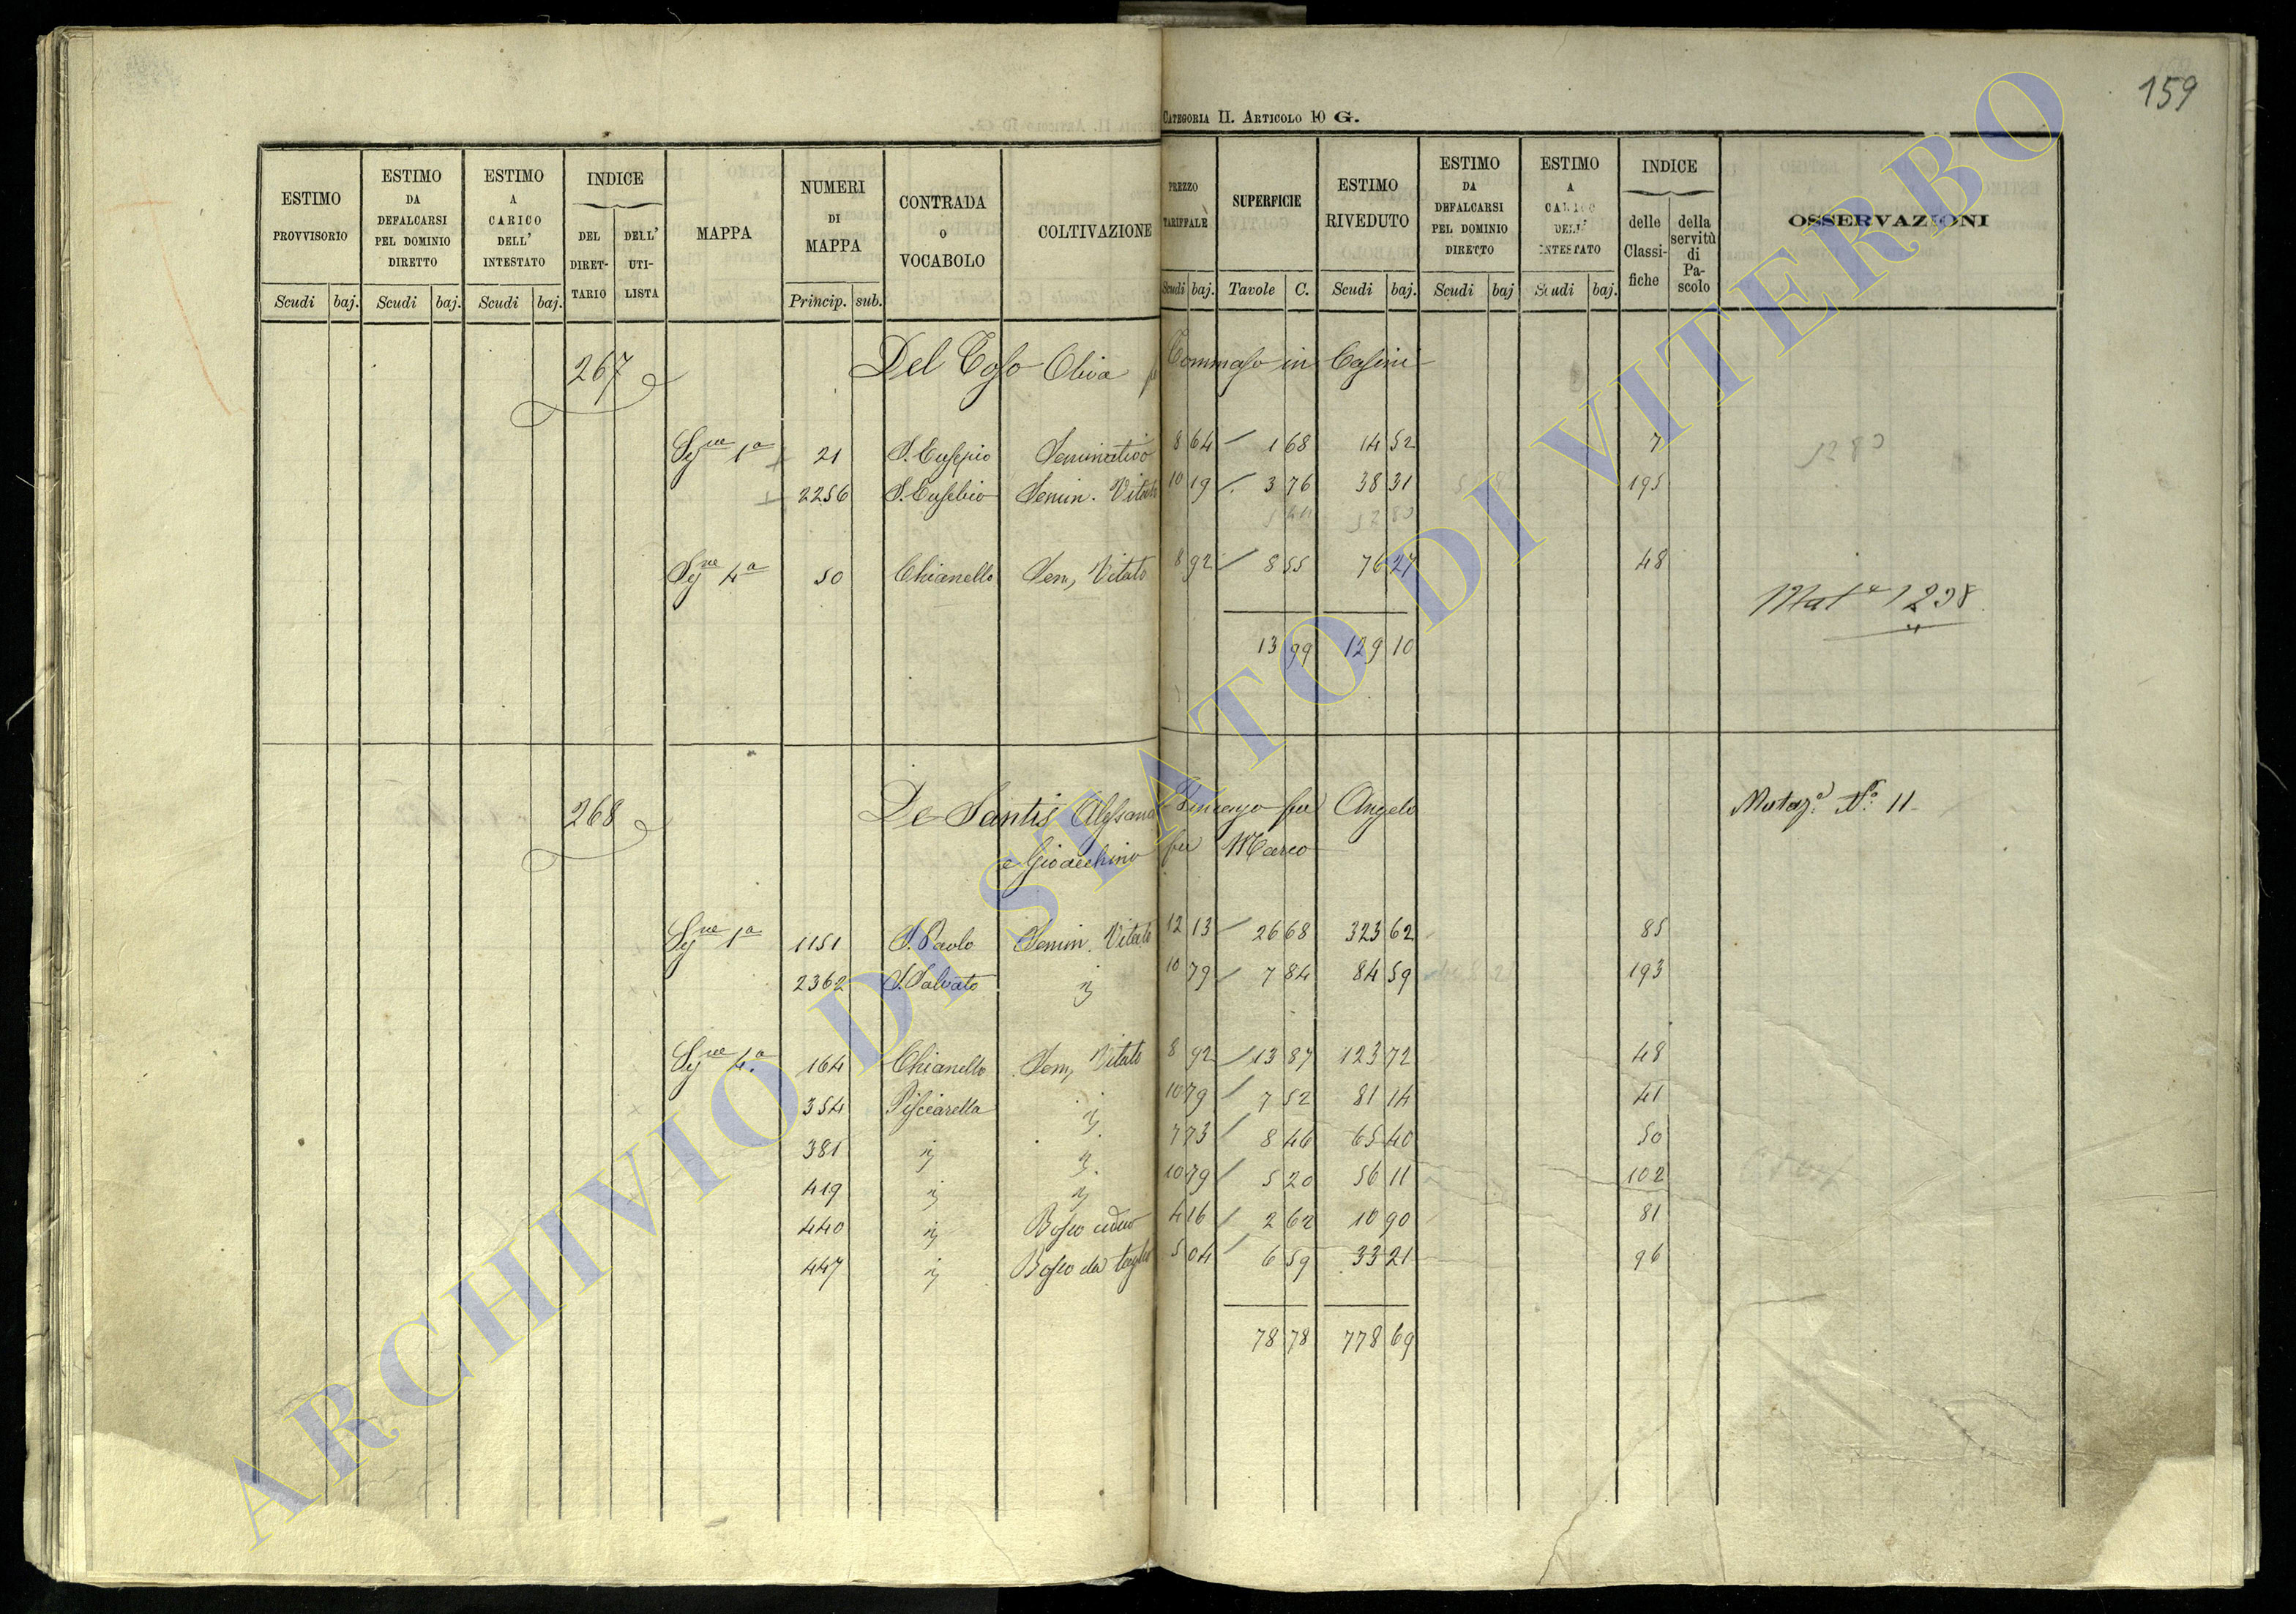 159
CATEGORIA II. ARTICOLO 10 G.
ESTIMO PROVVISORIO Scudi baj.
ESTIMO DA DEFALCARSI PEL DOMINIO DIRETTO Scudi baj.
ESTIMO A CARICO DELL' INTESTATO Scudi baj.
INDICE DEL DIRETTARIO DELL' UTILISTA
MAPPA
NUMERI DI MAPPA Princip. sub.
CONTRADA o VOCABOLO
COLTIVAZIONE
PREZZO TARIFFALE Scudi baj.
SUPERFICIE Tavole C.
ESTIMO RIVEDUTO Scudi baj.
ESTIMO DA DEFALCARSI PEL DOMINIO DIRETTO Scudi baj
ESTIMO A CARICO DELL' INTESTATO Scudi baj.
INDICE delle Classifiche della servitù di Pascolo
OSSERVAZIONI
267 Del Toso Oliva Tommaso in Casini
Sne 1a 21 S. Eusepio Seminativo 8 64 1 68 14 52 7
2256 S. Eusebio Semin. Vitato 10 19 3 76 38 31 195
Sne 4a 50 Chianello Sem, Vitato 8 92 8 55 76 27 48
13 99 129 10
268 De Santis Alessand Vincenzo fu Angelo Mutaz. N.º 11
e Gioacchino fu Marco
Sne 1a 1151 S. Paolo Semin. Vitato 12 13 26 68 323 62 85
2362 S. Salvato " 10 79 7 84 84 59 193
Sne 4a 164 Chianello Sem, Vitato 8 92 13 87 123 72 48
354 Pisciarella " 10 79 7 52 81 14 41
381 " " 7 73 8 46 65 40 50
419 " " 10 79 5 20 56 11 102
440 " Bosco ceduo 4 16 2 62 10 90 81
447 " Bosco da taglio 5 04 6 59 33 21 96
78 78 778 69
ARCHIVIO DI STATO DI VITERBO